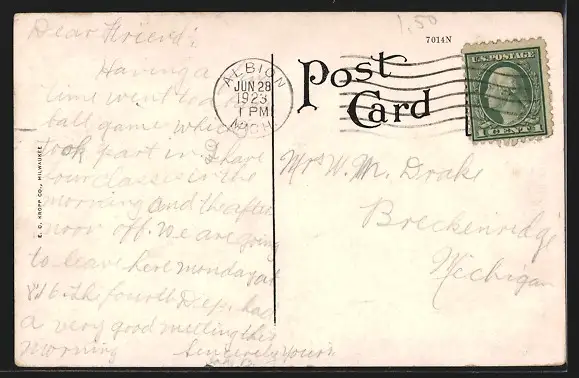 Dear Friend:
Having a
time went to a
ball game which
took part in I have
four classes in the
morning and the after
noon off. We are going
to leave here monday at
8 the fourth Dep. had
a very good meeting this
morning Sincerely Yours
E. C. KROPP CO., MILWAUKEE
ALBION
JUN 28
1923
1 PM
MICH.
Post
Card
1.50
7014N
U.S. POSTAGE
1 CENT 1
Mrs W. M. Drake
Breckenridge
Michigan